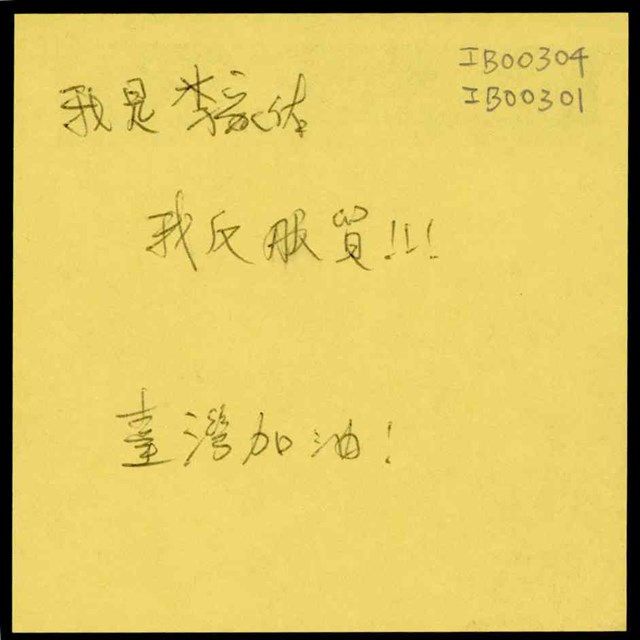 IB00304
IB00301
我是李家佑
我反服貿!!!
臺灣加油!